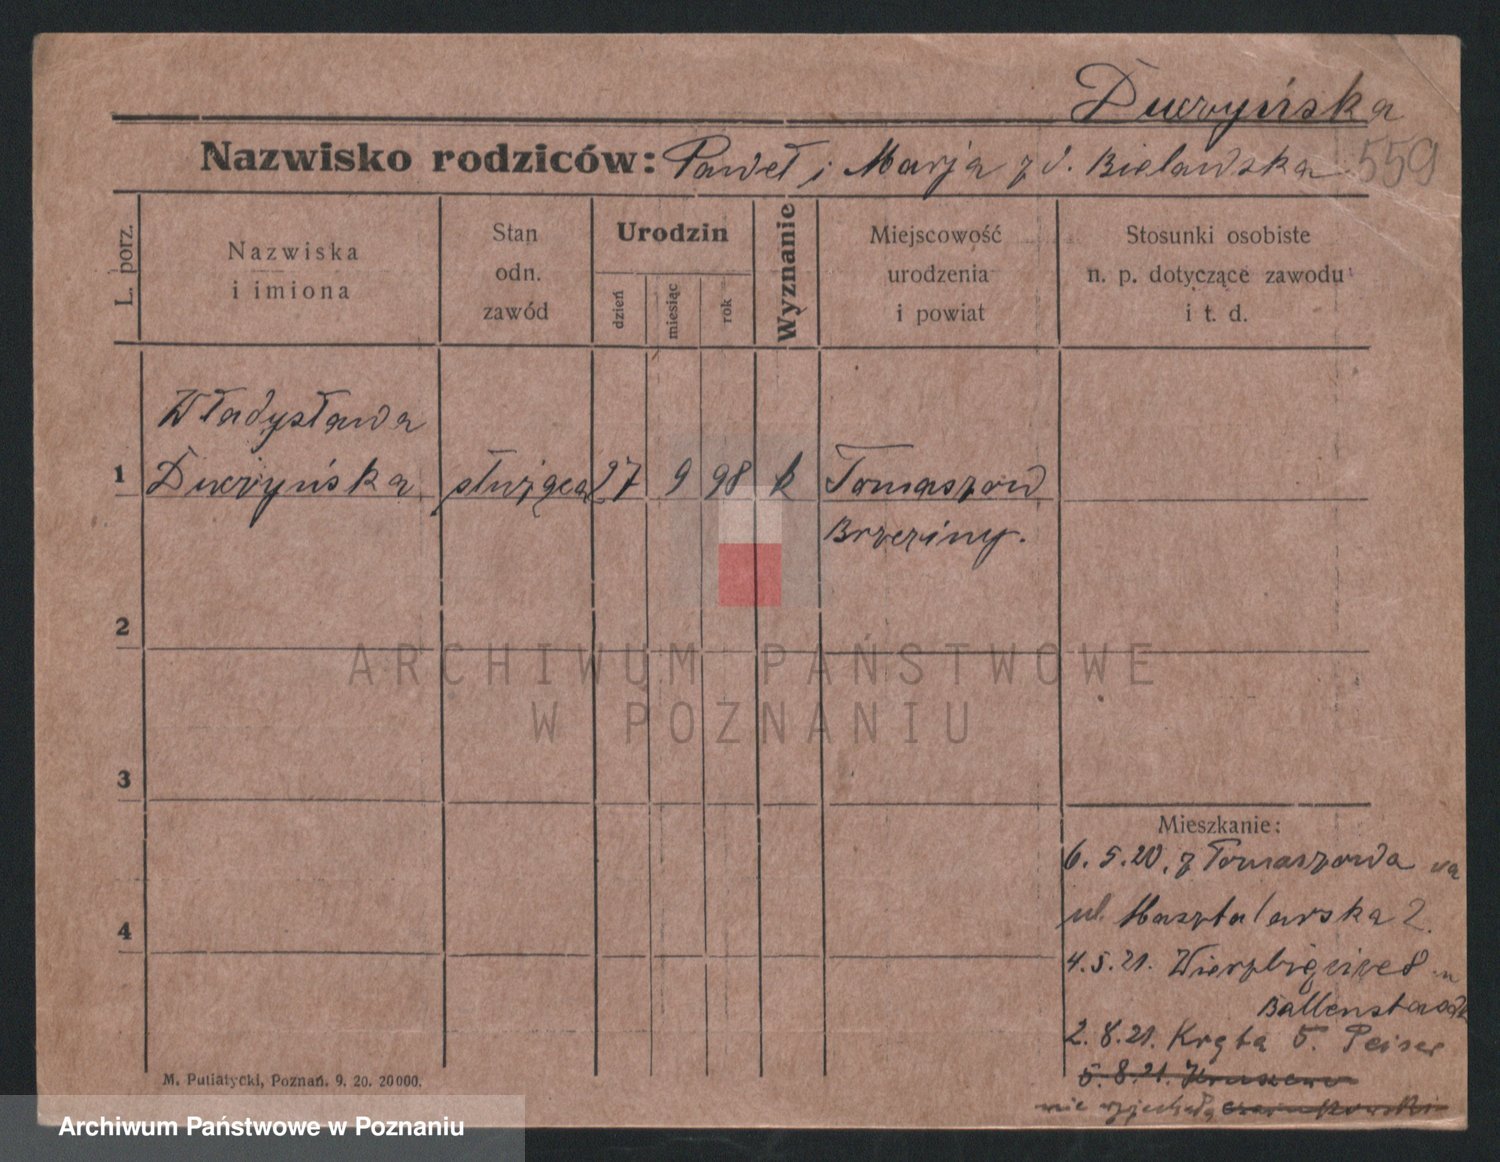 Duczyńska
Nazwisko rodziców: Paweł i Marja z d. Bielawska 559
L. porz.
Nazwiska
i imiona
Stan
odn.
zawód
Urodzin
dzień
miesiąc
rok
Wyznanie
Miejscowość
urodzenia
i powiat
Stosunki osobiste
n. p. dotyczące zawodu
i t. d.
Władysława
1 Duczyńska służąca 27 9 98 k Tomaszow
Brzeziny.
2
3
4
ARCHIWUM PAŃSTWOWE
W POZNANIU
Mieszkanie:
6.5.20. z Tomaszowa na
ul. Masztalarska 2.
4.5.21. Wierzbięcice 8 u
2.8.21. Kręta 5. Peiser
5.8.21.
nie wyjechała
M. Putiatycki, Poznań. 9. 20. 20000.
Archiwum Państwowe w Poznaniu